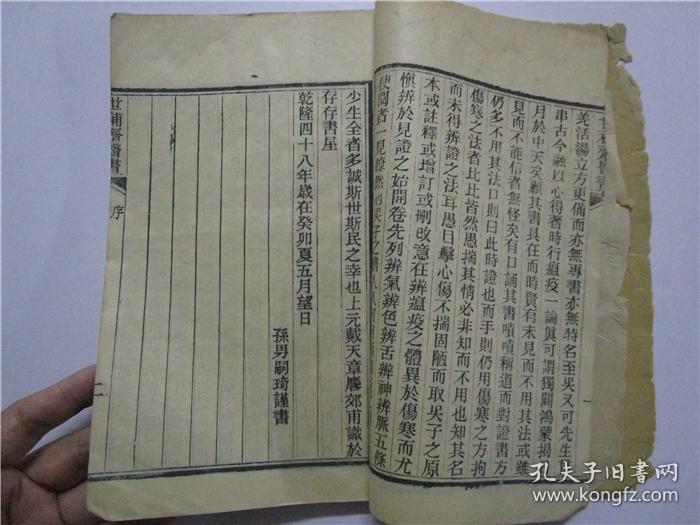 羌活湯立方更備而亦無專書亦無特名至吳又可先生
串古今融以心得著時行瘟疫一論眞可謂獨闢鴻蒙揭
月於中天矣顧其書具在而時賢有未見而不用其法或雖
見而不能信者無怪矣有口誦其書嘖嘖稱道而對證書方
仍多不用其法口則曰此時證也而手則仍用傷寒之方拘
傷寒之法者比比皆然愚揣其情必非知而不用也知其名
而未得辨證之法耳愚目擊心傷不揣固陋而取吳子之原
本或註釋或增訂或刪改意在辨瘟疫之體異於傷寒而尤
愼辨於見證之始開卷先列辨氣辨色辨舌辨神辨脈五條
使閱者一見瞭然則吳子之書人人可用
少生全者多誠斯世斯民之幸也上元戴天章麐郊甫識於
存存書屋
乾隆四十八年歲在癸卯夏五月望日
孫男嗣琦謹書
世補齋醫書
序
二
孔夫子旧书网
www.kongfz.com